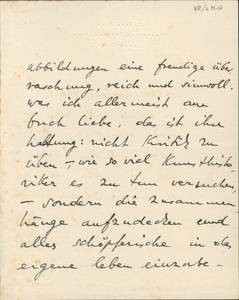 abbildungen eine freudige über
raschung, reich und sinnvoll.
was ich allermeist am
buch liebe, das ist ihre
haltung: nicht Kritik zu
üben, – wie so viel Kunsthisto
riker es zu tun versuchen,
– sondern die zusammen
hänge aufzudecken und
alles schöpferische in das
eigene leben einzube-